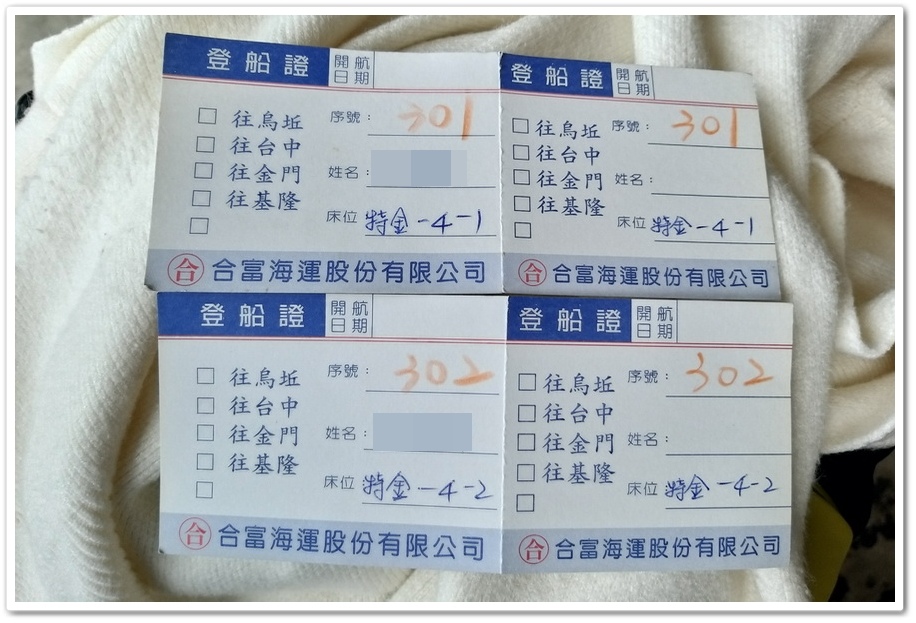 登船證 開航日期
□ 往烏坵 序號：301
□ 往台中
□ 往金門 姓名：
□ 往基隆
□ 床位 特金-4-1
合 合富海運股份有限公司
登船證 開航日期
□ 往烏坵 序號：301
□ 往台中
□ 往金門 姓名：
□ 往基隆
□ 床位 特金-4-1
合 合富海運股份有限公司
登船證 開航日期
□ 往烏坵 序號：302
□ 往台中
□ 往金門 姓名：
□ 往基隆
□ 床位 特金-4-2
合 合富海運股份有限公司
登船證 開航日期
□ 往烏坵 序號：302
□ 往台中
□ 往金門 姓名：
□ 往基隆
□ 床位 特金-4-2
合 合富海運股份有限公司